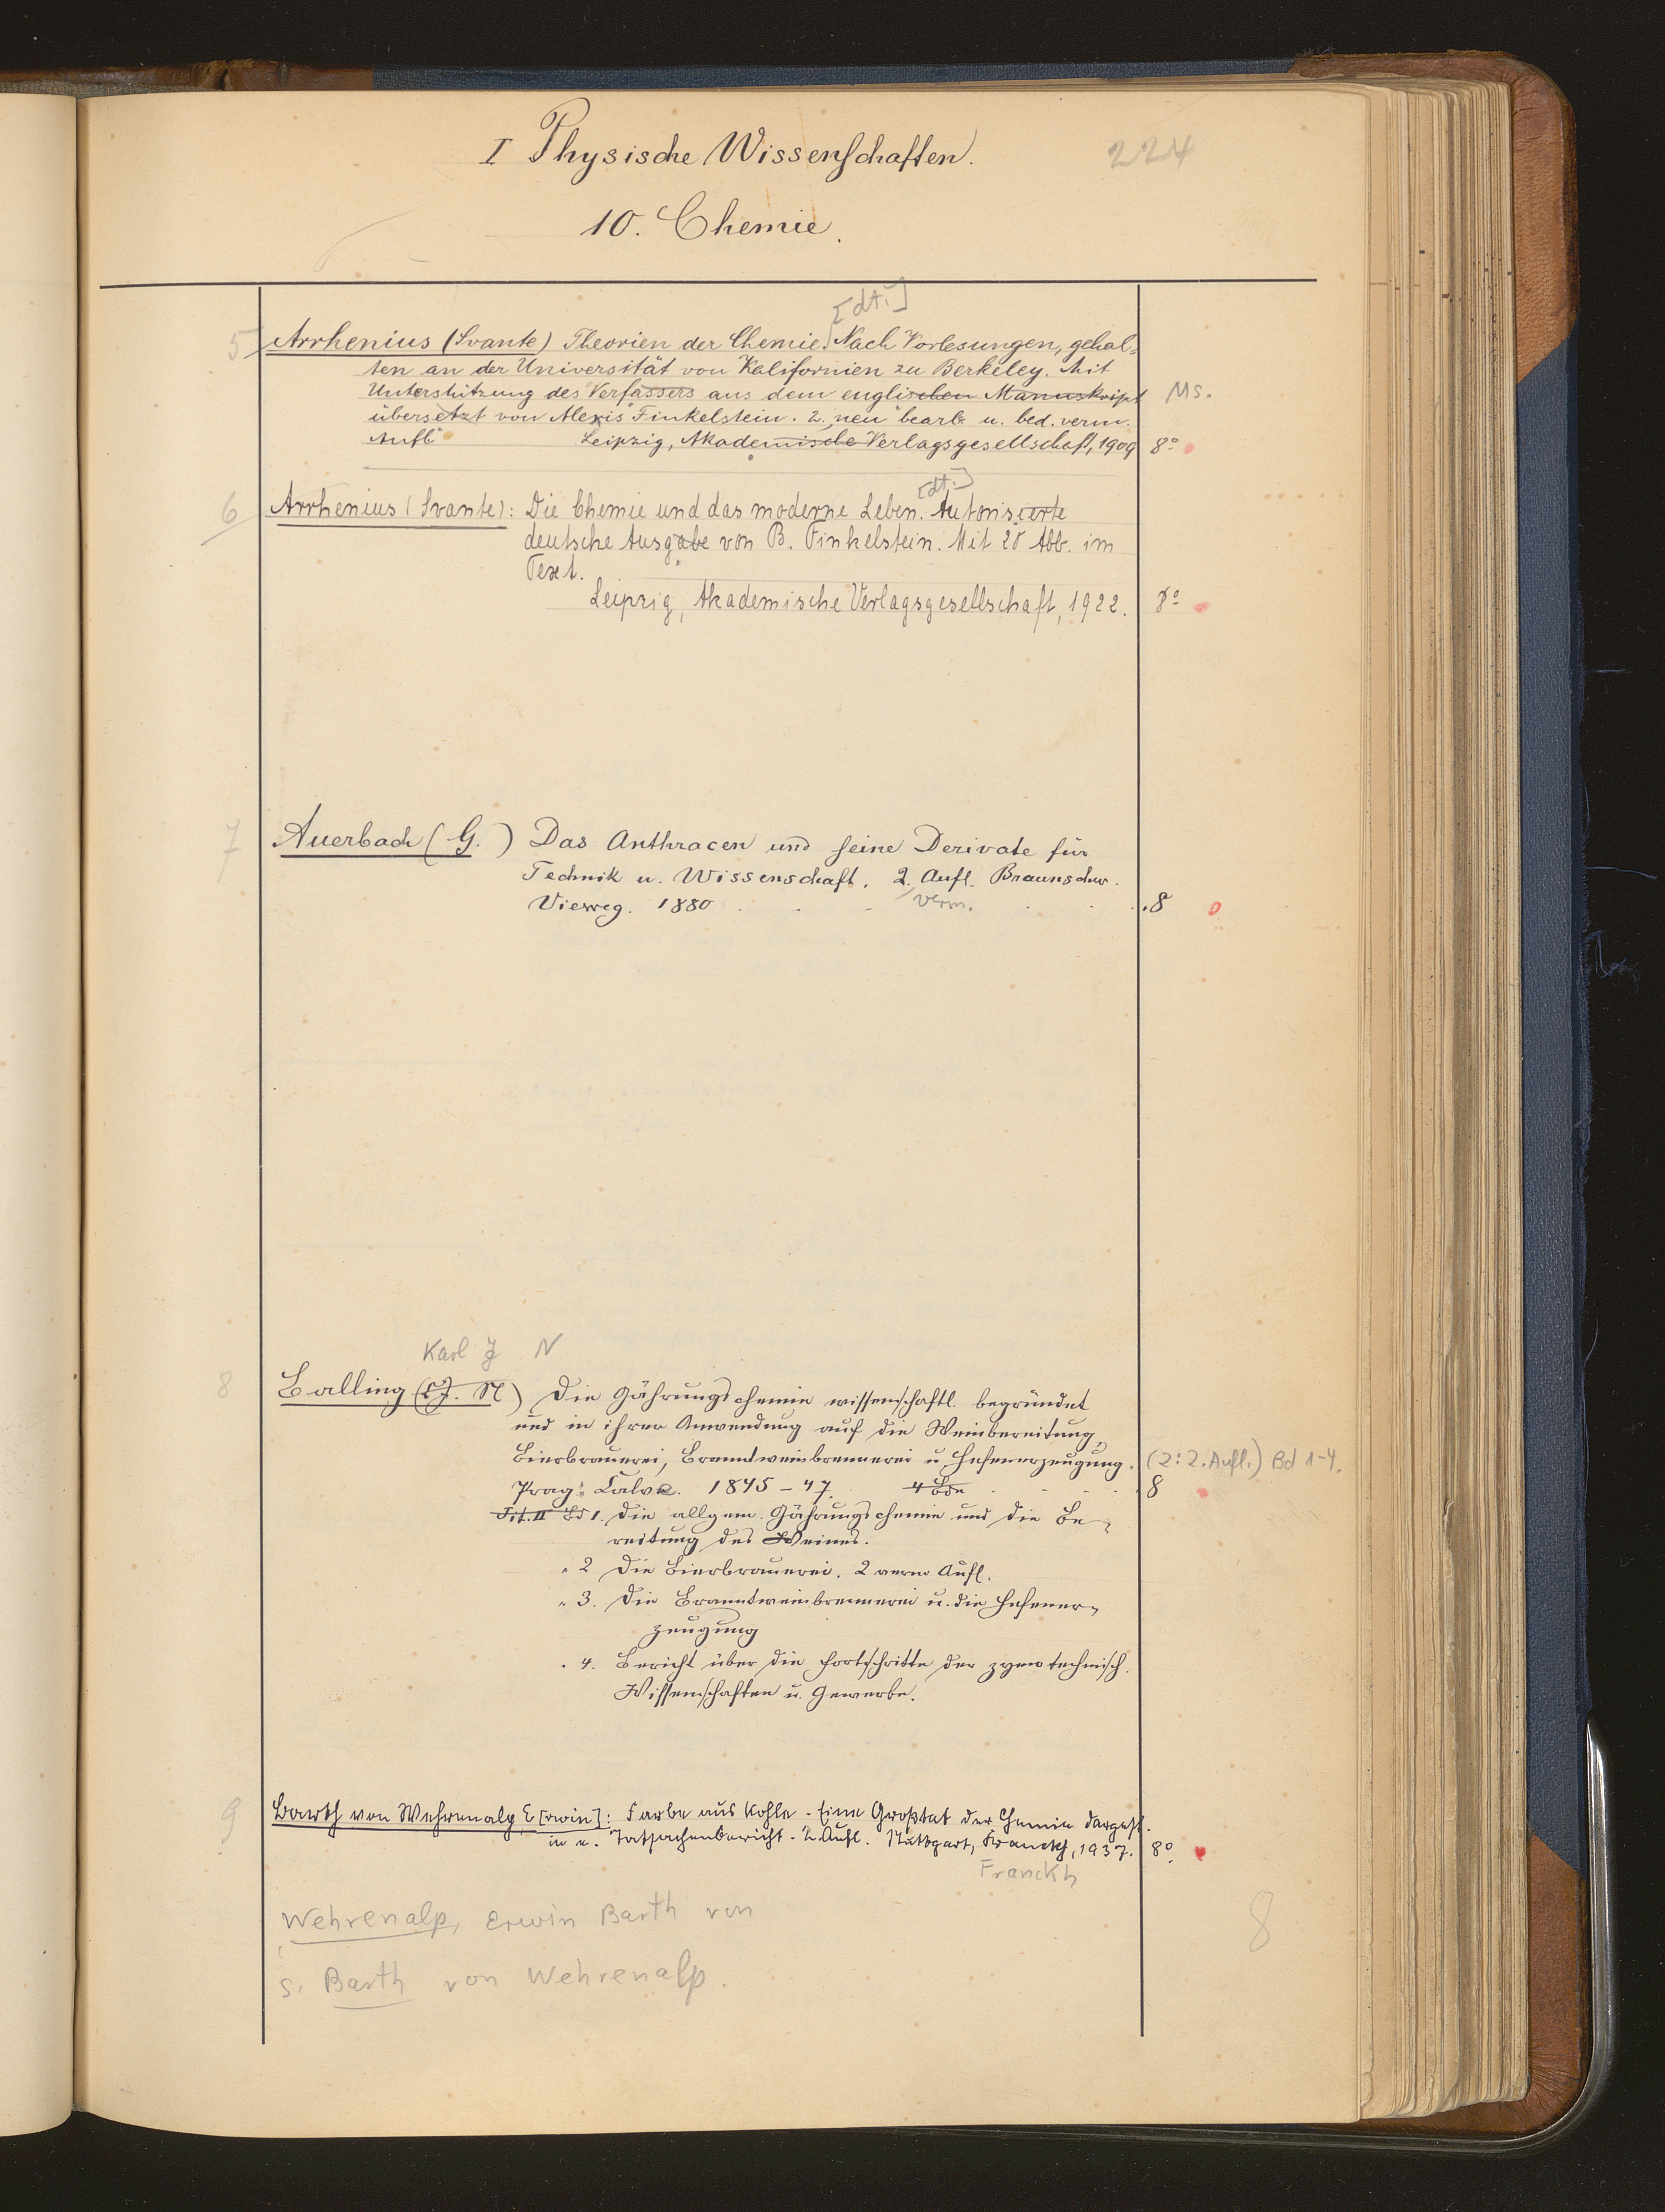 I Physische Wissenschaften.
224
10. Chemie.
[dt.]
5 Arrhenius (Svante) Theorien der Chemie. Nach Vorlesungen, gehal-
ten an der Universität von Kalifornien zu Berkeley. Mit
Unterstützung des Verfassers aus dem englischen Manuskript Ms.
übersetzt von Alexis Finkelstein. 2., neu bearb. u. bed. verm.
Aufl. Leipzig, Akademische Verlagsgesellschaft, 1909 8°
[dt.]
6 Arrhenius (Svante): Die Chemie und das moderne Leben. Autorisierte
deutsche Ausgabe von B. Finkelstein. Mit 20 Abb. im
Text.
Leipzig, Akademische Verlagsgesellschaft, 1922. 8°
7 Auerbach (G.) Das Anthracen und seine Derivate für
Technik u. Wissenschaft. 2. Aufl. Braunschw.
Vieweg. 1880 verm. 8
Karl J N
8 Balling (C. J. N) Die Gährungschemie wissenschaftl. begründet
und in ihrer Anwendung auf die Weinbereitung,
Bierbrauerei, Branntweinbrennerei u Hefenerzeugung. (2: 2. Aufl.) Bd 1-4.
Prag: Calve. 1845-47. 4 Bde 8
Tit. II Bd 1. Die allgem. Gährungschemie und die Be-
reitung des Weines.
" 2 Die Bierbrauerei. 2 verm Aufl.
" 3. Die Branntweinbrennerei u. die Hefener-
zeugung
" 4. Bericht über die Fortschritte der zymotechnisch.
Wissenschaften u. Gewerbe.
9 Barth von Wehrenalp, E[rwin]: Farbe aus Kohle. Eine Großtat der Chemie dargest.
in e. Tatsachenbericht. 2. Aufl. Stuttgart, Franckh, 1937. 8°
Franckh
Wehrenalp, Erwin Barth von
8
s. Barth von Wehrenalp.